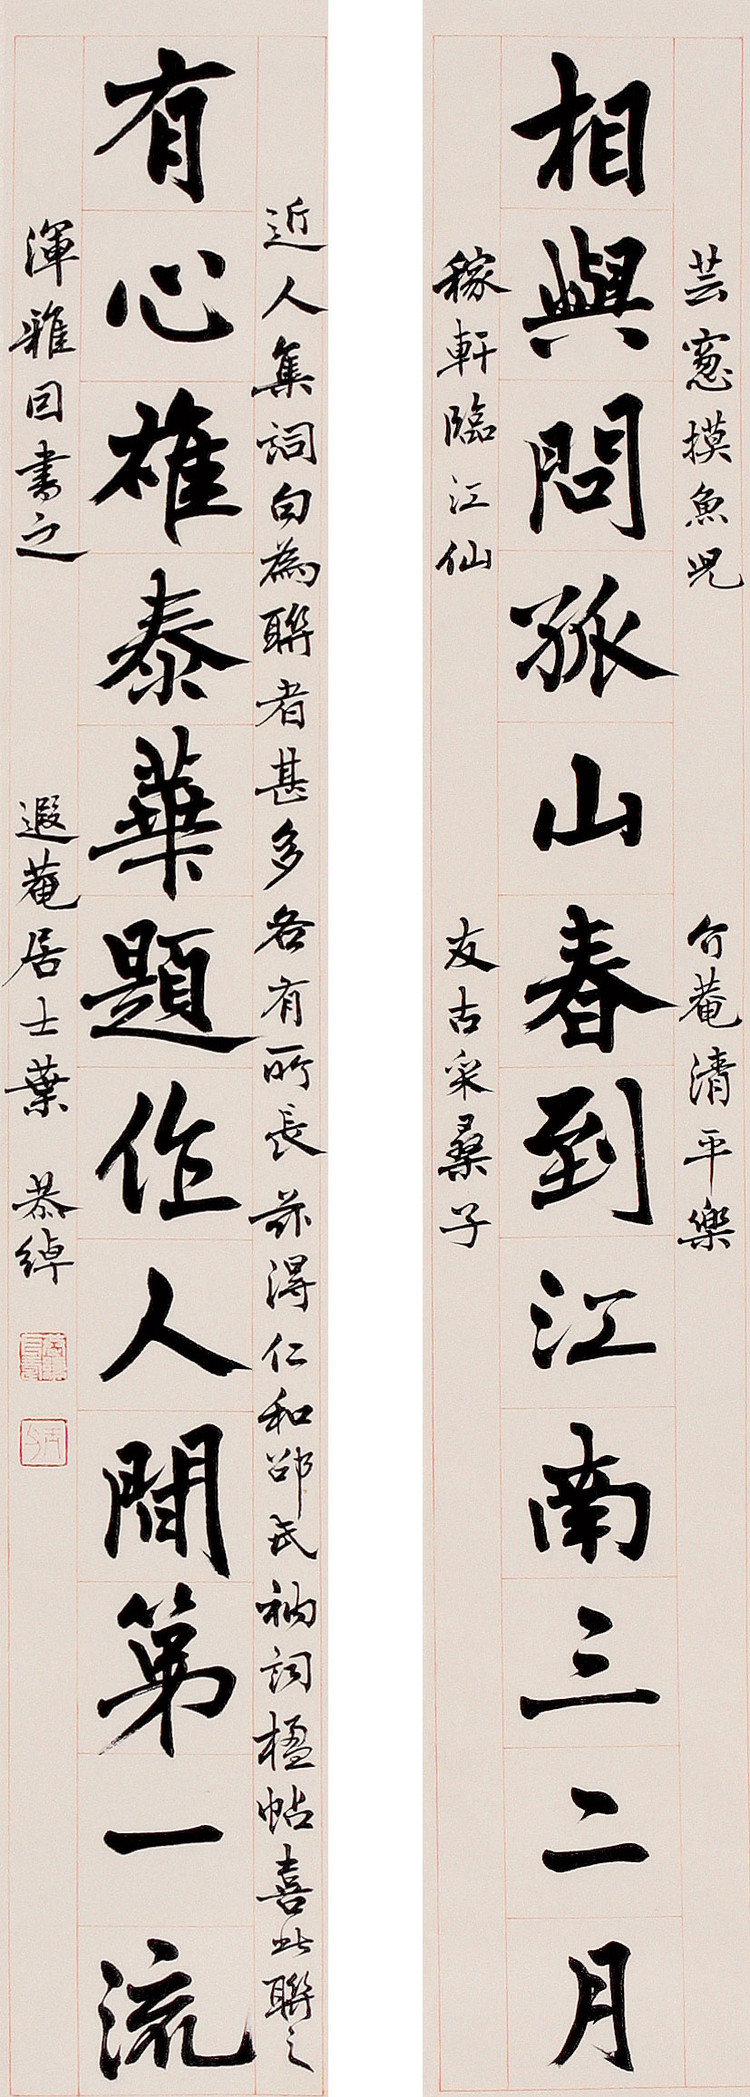 芸窻摸魚兒 介菴清平樂
相與問孤山春到江南三二月
稼軒臨江仙 友古采桑子
近人集詞句為聯者甚多各有所長茲得仁和邵氏衲詞楹帖喜此聯之
有心雄泰華題作人間第一流
渾雅因書之 遐菴居士葉恭綽